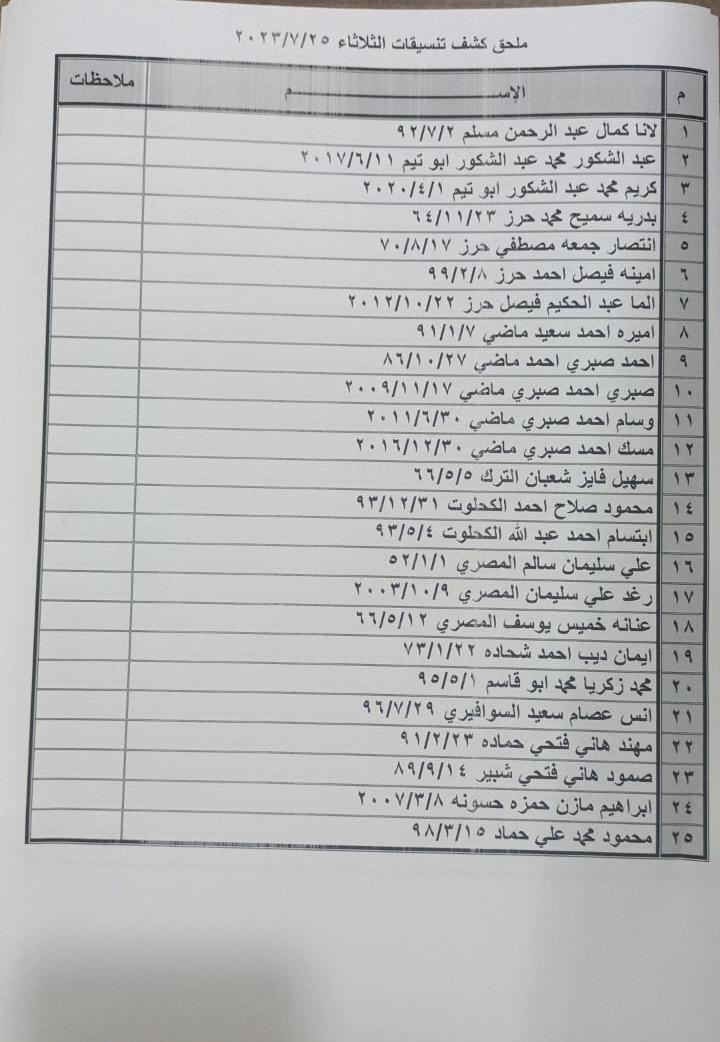 ملحق كشف تنسيقات الثلاثاء ٢٠٢٣/٧/٢٥
م الإســـــــــــــــــــــــم ملاحظات
١ لانا كمال عبد الرحمن مسلم ٩٢/٧/٢
٢ عبد الشكور محمد عبد الشكور ابو تيم ٢٠١٧/٦/١١
٣ كريم محمد عبد الشكور ابو تيم ٢٠٢٠/٤/١
٤ بدريه سميح محمد حرز ٦٤/١١/٢٣
٥ انتصار جمعه مصطفي حرز ٧٠/٨/١٧
٦ امينه فيصل احمد حرز ٩٩/٢/٨
٧ الما عبد الحكيم فيصل حرز ٢٠١٢/١٠/٢٢
٨ اميره احمد سعيد ماضي ٩١/١/٧
٩ احمد صبري احمد ماضي ٨٦/١٠/٢٧
١٠ صبري احمد صبري ماضي ٢٠٠٩/١١/١٧
١١ وسام احمد صبري ماضي ٢٠١١/٦/٣٠
١٢ مسك احمد صبري ماضي ٢٠١٦/١٢/٣٠
١٣ سهيل فايز شعبان الترك ٦٦/٥/٥
١٤ محمود صلاح احمد الكحلوت ٩٣/١٢/٣١
١٥ ابتسام احمد عبد الله الكحلوت ٩٣/٥/٤
١٦ علي سليمان سالم المصري ٥٢/١/١
١٧ رغد علي سليمان المصري ٢٠٠٣/١٠/٩
١٨ عنانه خميس يوسف المصري ٦٦/٥/١٢
١٩ ايمان ديب احمد شحاده ٧٣/١/٢٢
٢٠ محمد زكريا محمد ابو قاسم ٩٥/٥/١
٢١ انس عصام سعيد السوافيري ٩٦/٧/٢٩
٢٢ مهند هاني فتحي حماده ٩١/٢/٢٣
٢٣ صمود هاني فتحي شبير ٨٩/٩/١٤
٢٤ ابراهيم مازن حمزه حسونه ٢٠٠٧/٣/٨
٢٥ محمود محمد علي حماد ٩٨/٣/١٥